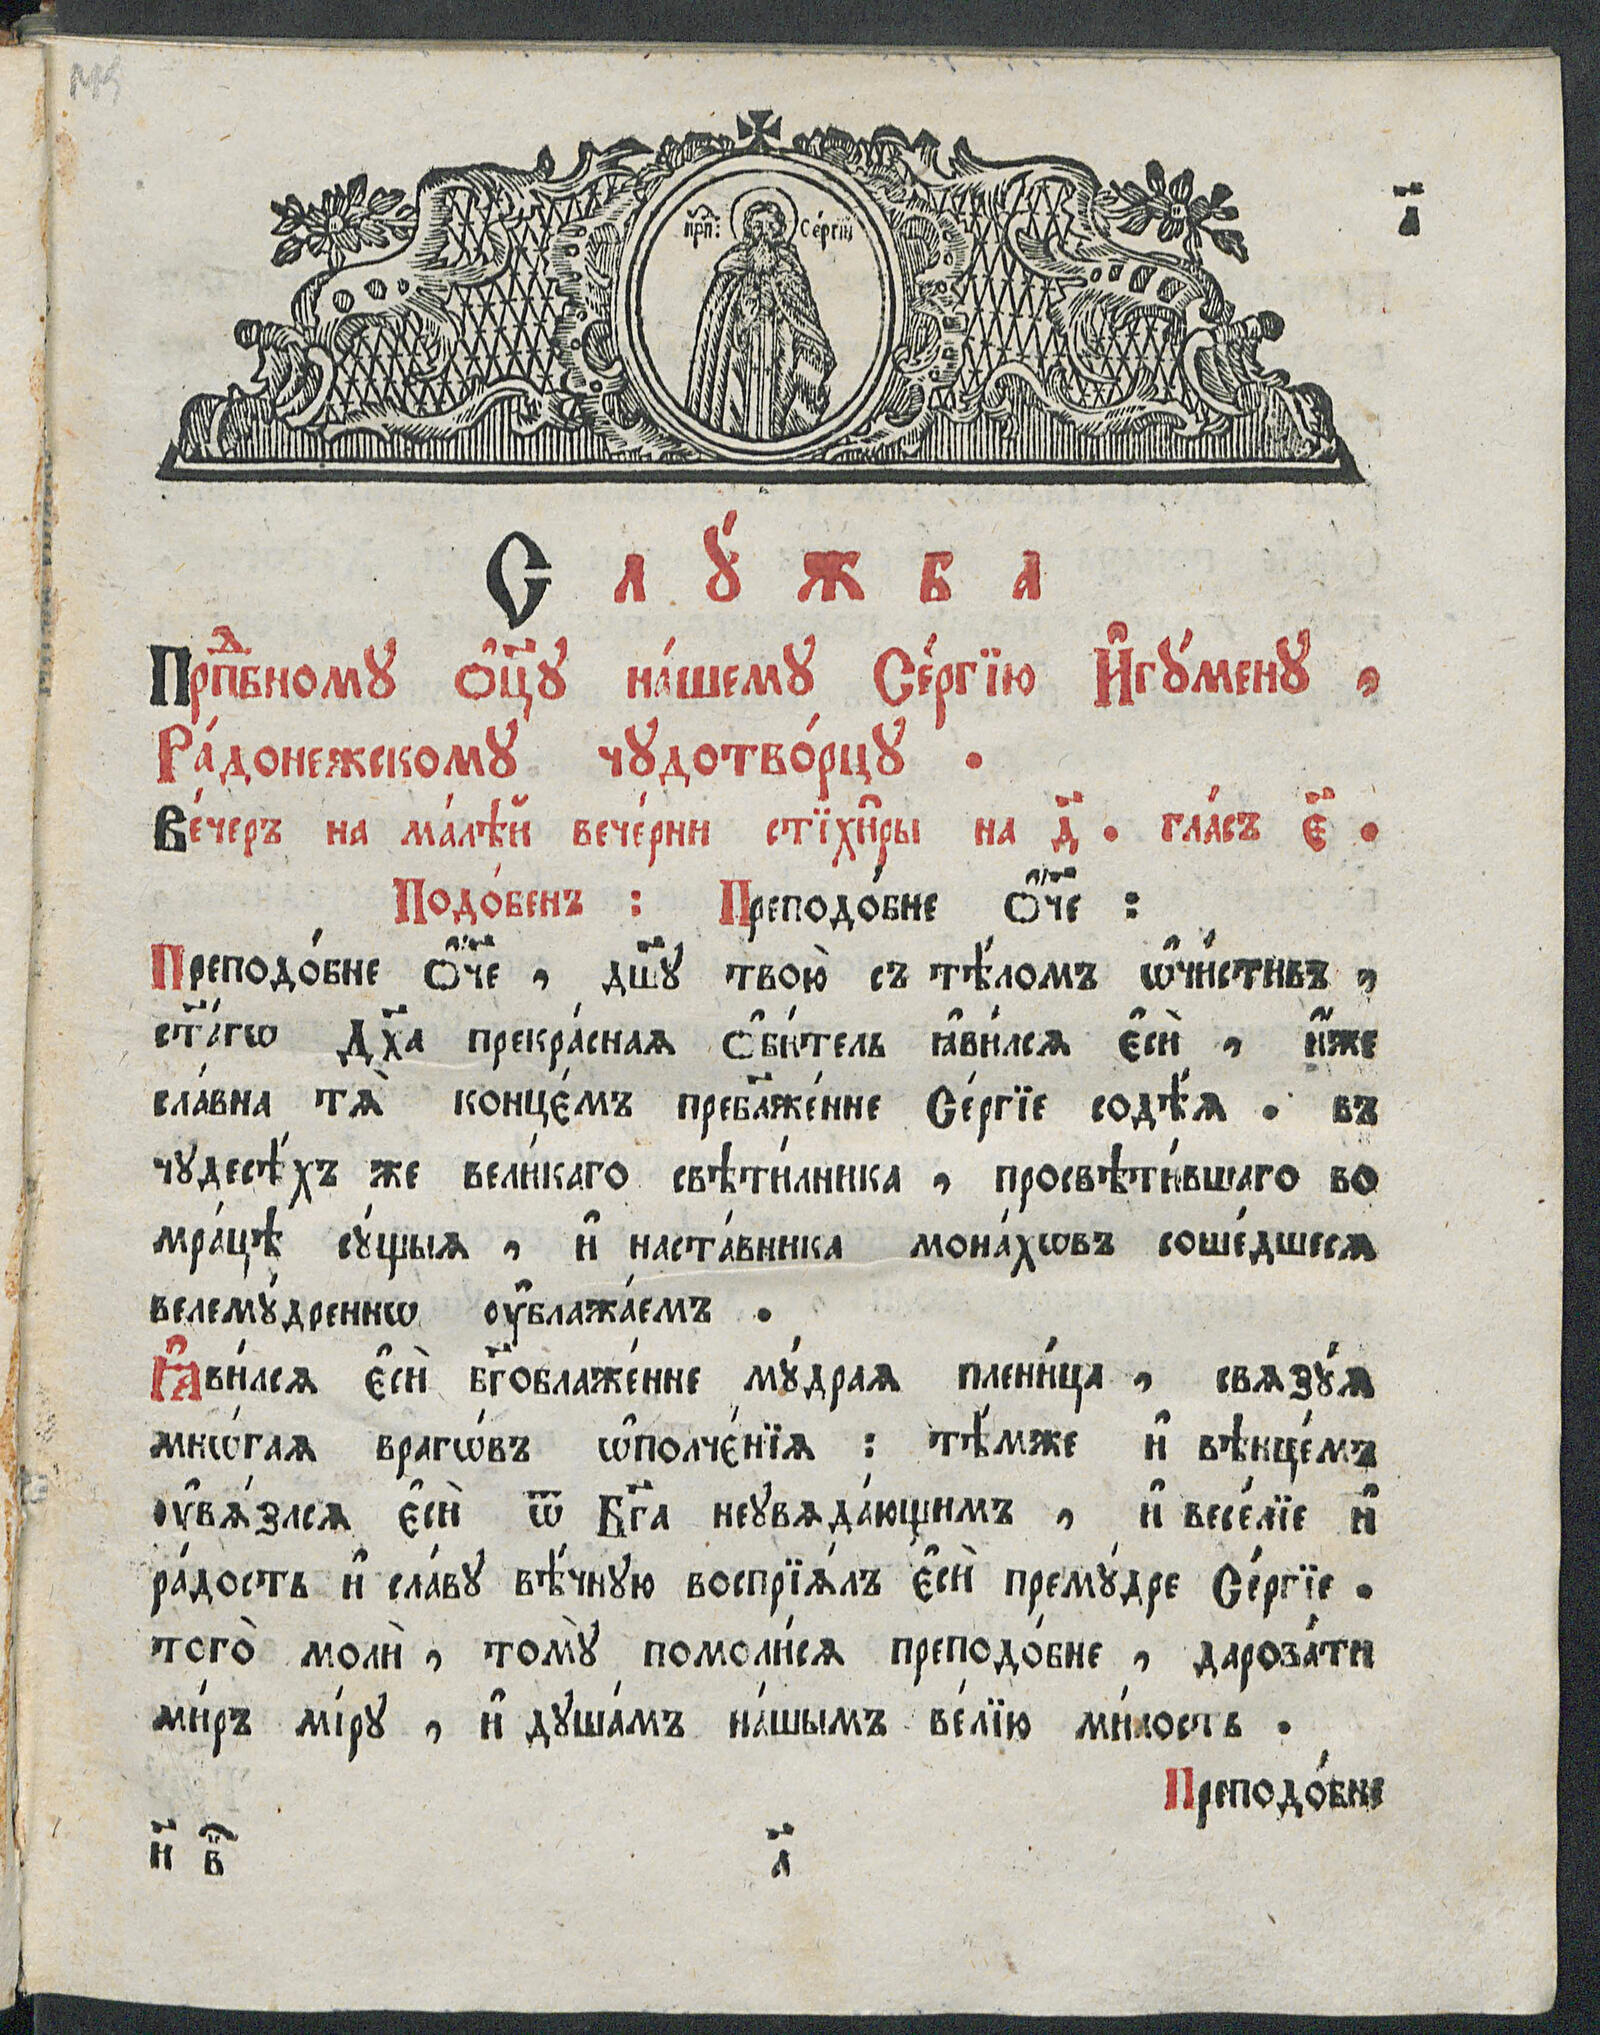 прⷣп: Се́ргїй
а҃
Слꙋ́жба
Прпⷣбномꙋ ѻ҆ц҃ꙋ на́шемꙋ Се́ргїю И҆гꙋ́менꙋ ,
Ра́донежскомꙋ чꙋдотво́рцꙋ .
Ве́черъ на ма́лѣй вече́рни стїхи̑ры на д҃ . гла́съ є҃ .
Подо́бенъ : Преподо́бне ѻ҆́ч҃е :
Преподо́бне ѻ҆́ч҃е , дш҃ꙋ твою̀ съ тѣ́ломъ ѡ҆чи́стивъ ,
ст҃а́гѡ Дх҃а прекра́сная ѻ҆би́тель ꙗ҆ви́лся є҆сѝ , и҆́же
сла́вна тѧ̀ концє́мъ пребл҃же́нне Се́ргїе содѣ́ѧ . въ
чꙋдесѣ́хъ же вели́каго свѣти́лника , просвѣти́вшаго во
мра́цѣ сꙋ́щыѧ , и҆ наста́вника мона́хѡвъ соше́дшесѧ
велемꙋ́дреннѡ оу҆блажа́емъ .
Ꙗ҆ви́лсѧ є҆сѝ бг҃облаже́нне мꙋ́драѧ плени́ца , свѧзꙋ́ѧ
мнѡ́гаѧ врагѡ́въ ѡ҆полчє́нїѧ : тѣ́мже и҆ вѣнце́мъ
оу҆вѧ́злсѧ є҆сѝ ѿ Бг҃а неувѧда́ющимъ , и҆ весе́лїе и҆
ра́дость и҆ сла́вꙋ вѣ́чную воспрїѧ́лъ є҆сѝ премꙋ́дре Се́ргїе .
того̀ молѝ , томꙋ̀ помоли́сѧ преподо́бне , дарова́ти
ми́ръ мі́рꙋ , и҆ дꙋша́мъ на́шымъ ве́лїю ми́лость .
Преподо́бне
н҃ в҃ а҃